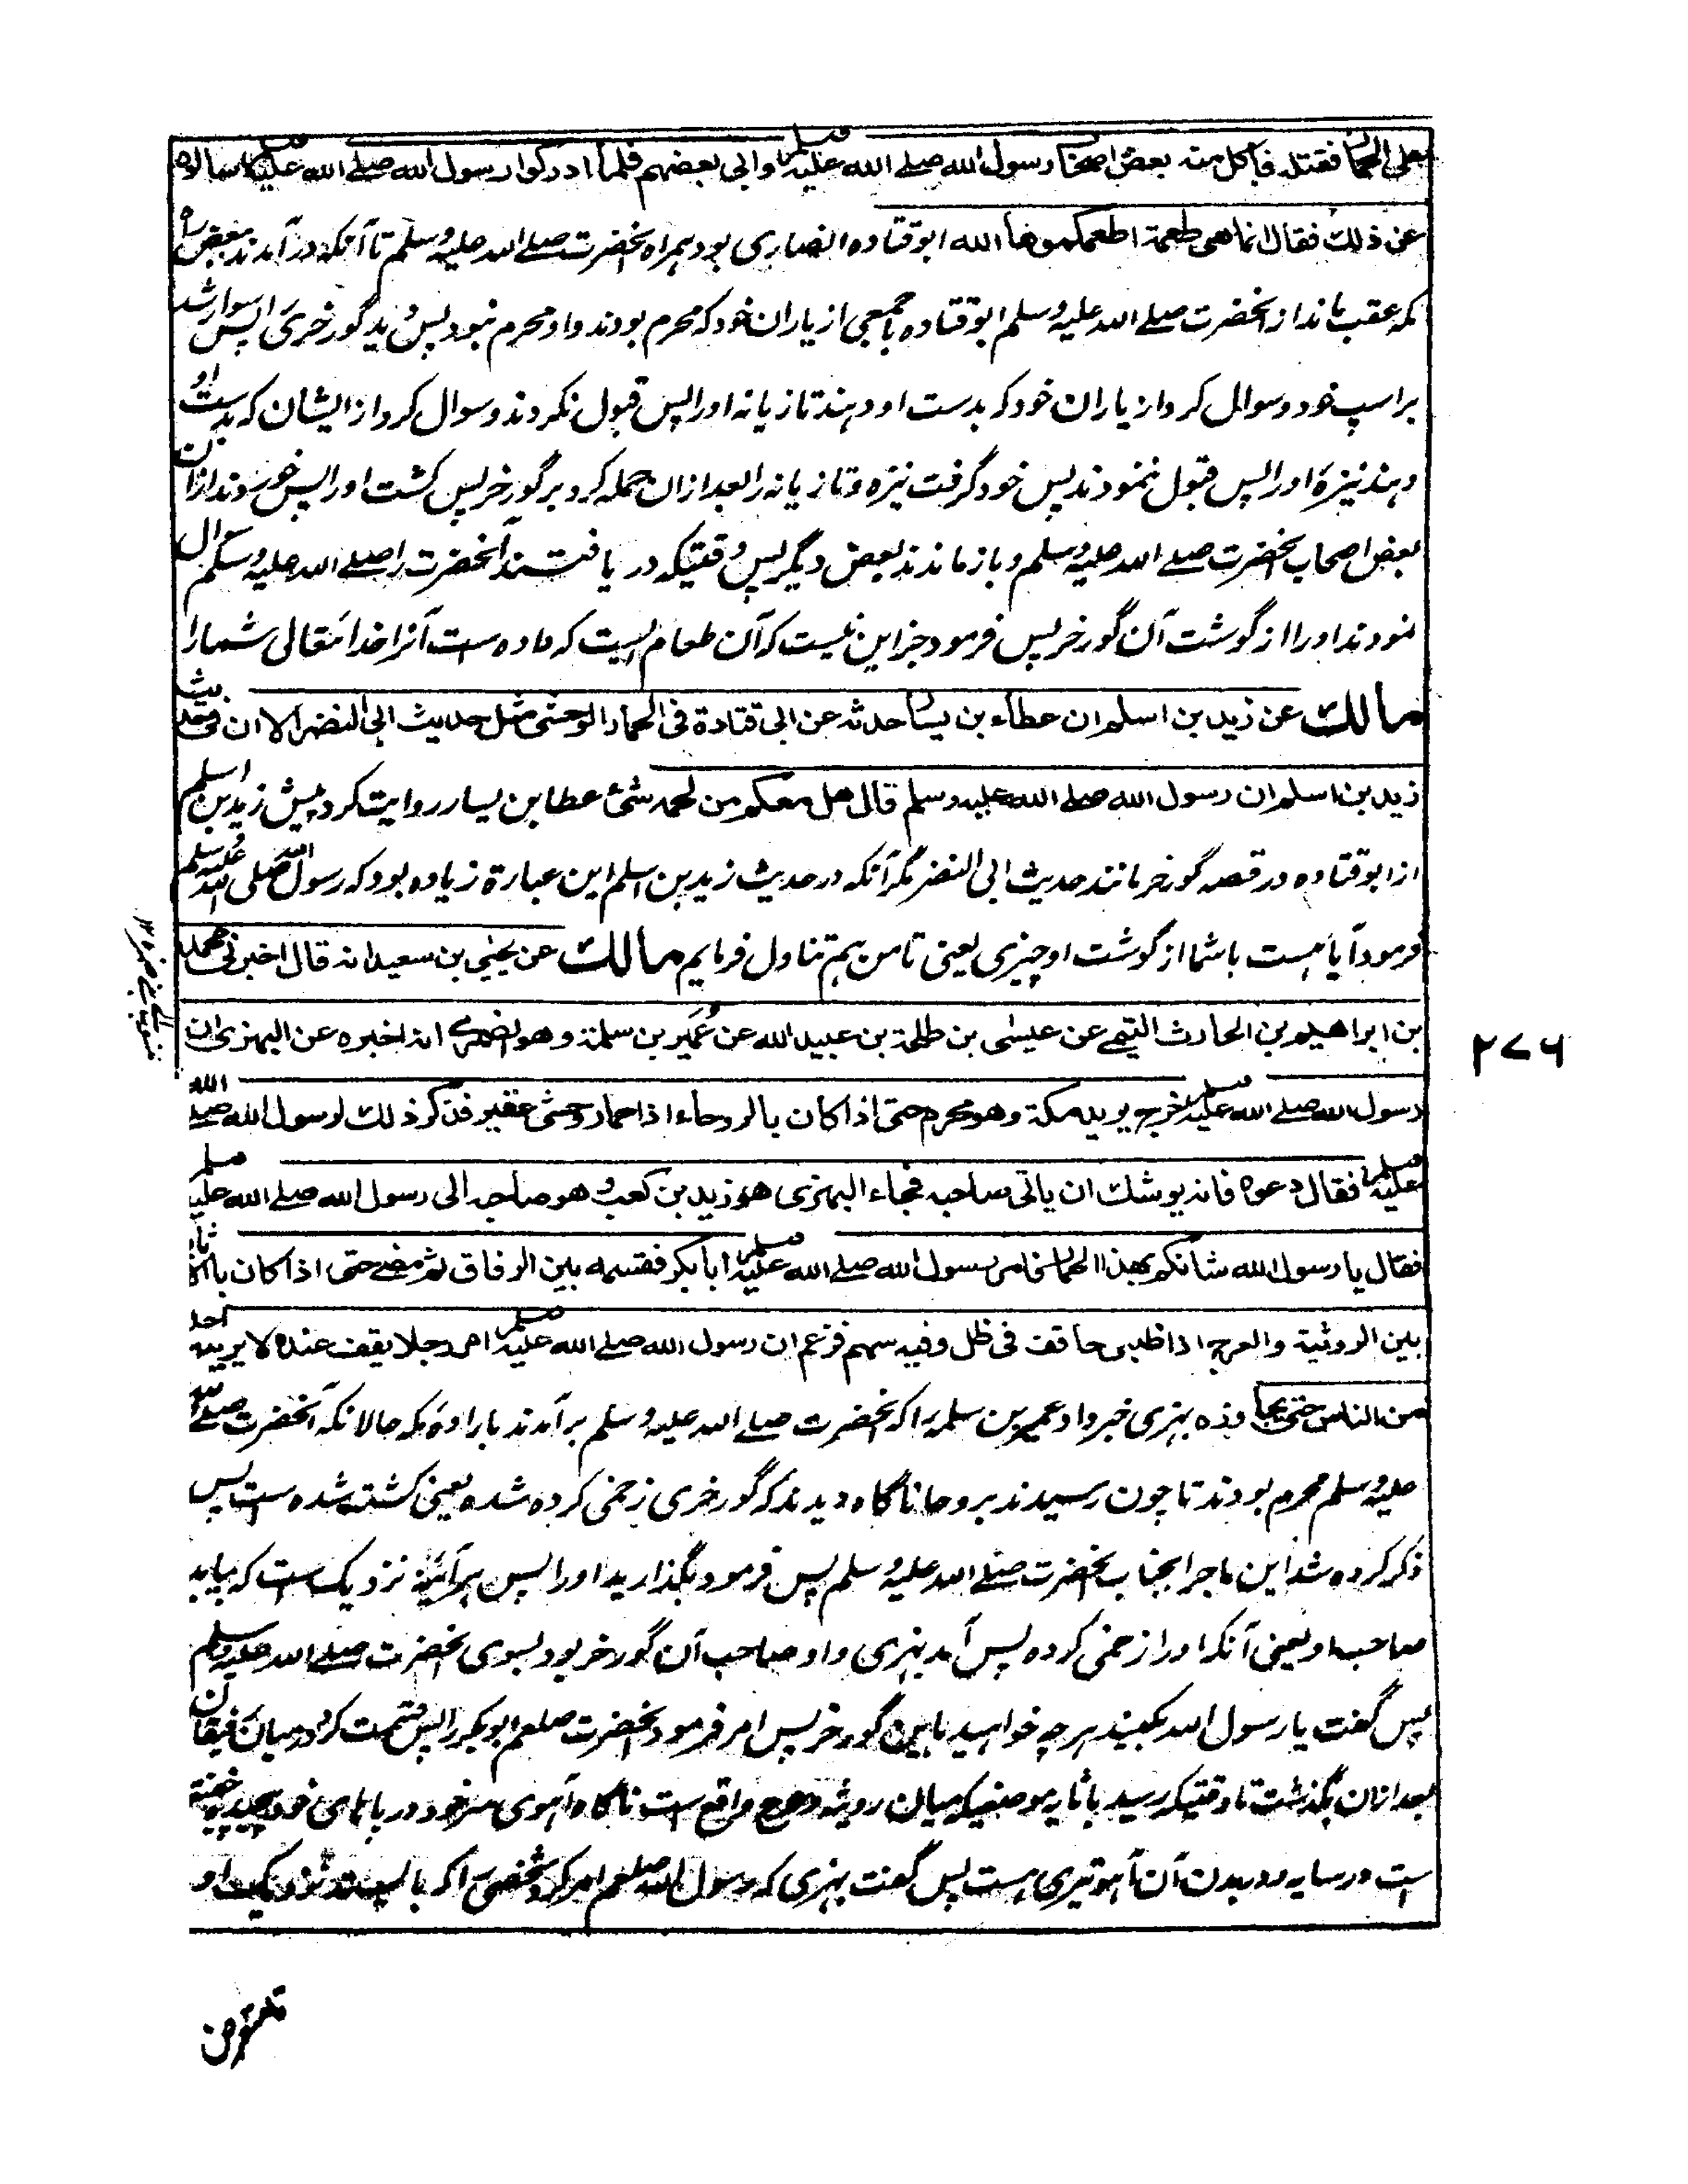 على الحمار فقتله فاكل منه بعض اصحاب رسول الله صلے الله عليه وسلم وابى بعضهم فلما ادركوا رسول الله صلے الله عليه وسلم سالوه
عن ذلك فقال انما هى طعمة اطعمكموها الله ابوقتاده انصاری بود همراه آنحضرت صلے الله علیه وسلم تا آنکه در آمدند بعض راه
مکه عقب ماند از آنحضرت صلے الله علیه وسلم ابوقتاده با جمعی از یاران خود که محرم بودند و او محرم نبود پس دید گورخری را پس سوار شد
بر اسپ خود و سوال کرد از یاران خود که بدست او دهند تازیانه او را پس قبول نکردند و سوال کرد از ایشان که بدست او
دهند نیزهٔ او را پس قبول ننمودند پس خود گرفت نیزه و تازیانه را بعد ازان حمله کرد بر گورخر پس کشت او را پس خوردند ازان
بعض اصحاب آنحضرت صلے الله علیه وسلم و باز ماندند بعض دیگر پس وقتیکه دریافتند آنحضرت را صلے الله علیه وسلم سوال
نمودند او را از گوشت آن گورخر پس فرمود جز این نیست که آن طعامیست که داده ست آنرا خدا تعالی شما را
مالك عن زيد بن اسلم ان عطاء بن يسار حدثه عن ابى قتادة فى الحمار الوحشى مثل حديث ابى النضر الا ان فى حديث
زيد بن اسلم ان رسول الله صلے الله عليه وسلم قال هل معكم من لحمه شئ عطا بن یسار روایت کرد پیش زید بن اسلم
از ابوقتاده در قصه گورخر مانند حدیث ابی النضر مگر آنکه در حدیث زید بن اسلم این عبارة زیاده بود که رسول الله صلی الله علیه وسلم
فرمود آیا هست با شما از گوشت او چیزی یعنی تا من هم تناول فرمایم مالك عن يحيى بن سعيد انه قال اخبرنى محمد
بن ابراهيم بن الحارث التيمى عن عيسى بن طلحة بن عبيد الله عن عمير بن سلمة وهو الضمرى انه اخبره عن البهزى ان
رسول الله صلے الله عليه وسلم خرج يريد مكة وهو محرم حتى اذا كان بالروحاء اذا حمار وحشى عقير فذكر ذلك لرسول الله صلے الله
عليه وسلم فقال دعوه فانه يوشك ان ياتى صاحبه فجاء البهزى هو زيد بن كعب وهو صاحبه الى رسول الله صلے الله عليه وسلم
فقال يا رسول الله شانكم بهذا الحمار فامر رسول الله صلے الله عليه وسلم ابا بكر فقسمه بين الرفاق ثم مضى حتى اذا كان بالاثاية
بين الرويثة والعرج اذا ظبى حاقف فى ظل وفيه سهم فزعم ان رسول الله صلے الله عليه وسلم امر رجلا يقف عنده لا يريبه احد
من الناس حتى يجاوزه بهزی خبر داد عمیر بن سلمه را که آنحضرت صلے الله علیه وسلم برآمدند باراده مکه حالانکه آنحضرت صلے الله
علیه وسلم محرم بودند تا چون رسیدند بروحا ناگاه دیدند که گورخری زخمی کرده شده یعنی کشته شده ست پس
ذکر کرده شد این ماجرا بجناب آنحضرت صلے الله علیه وسلم پس فرمود بگذارید او را پس هر آئینه نزدیک ست که بیاید
صاحب او یعنی آنکه او را زخمی کرده پس آمد بهزی و او صاحب آن گورخر بود بسوی آنحضرت صلے الله علیه وسلم
پس گفت یا رسول الله بکنید هر چه خواهید باین گورخر پس امر فرمود آنحضرت صلعم ابوبکر را پس قسمت کرد درمیان رفیقان
بعد ازان بگذشت تا وقتیکه رسید باثایه موضعیکه میان رویثه و عرج واقع ست ناگاه آهوی سر خود در پاهای خود پیچیده خفته
ست در سایه و در بدن آن آهو تیری هست پس گفت بهزی که رسول الله صلعم امر کرد شخصی را که بایستد نزدیک او
۲۷۶
تعرض